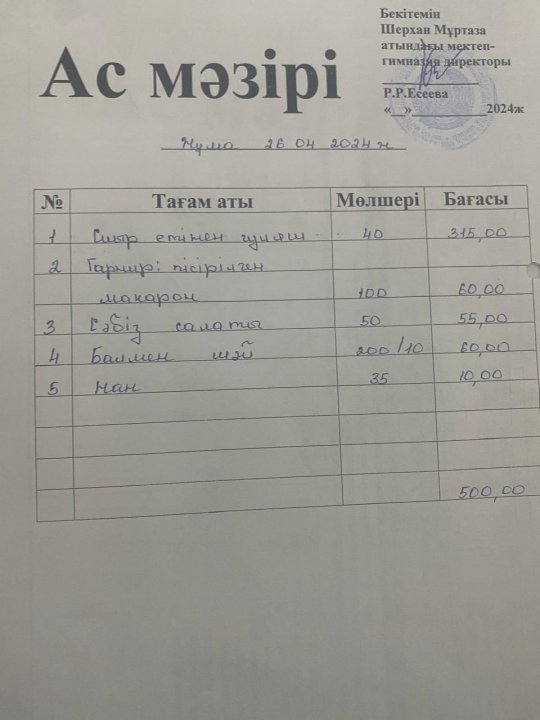 Бекітемін
Шерхан Мұртаза
атындағы мектеп-
гимназия директоры
Р.Р.Есеева
«__»___________2024ж
Ас мәзірі
Жұма 26 04 2024 ж
№ Тағам аты Мөлшері Бағасы
1 Сиыр етінен гуляш 40 315,00
2 Гарнир: пісірілген
макарон 100 60,00
3 Сәбіз салаты 50 55,00
4 Балмен шәй 200/10 60,00
5 Нан 35 10,00
500,00